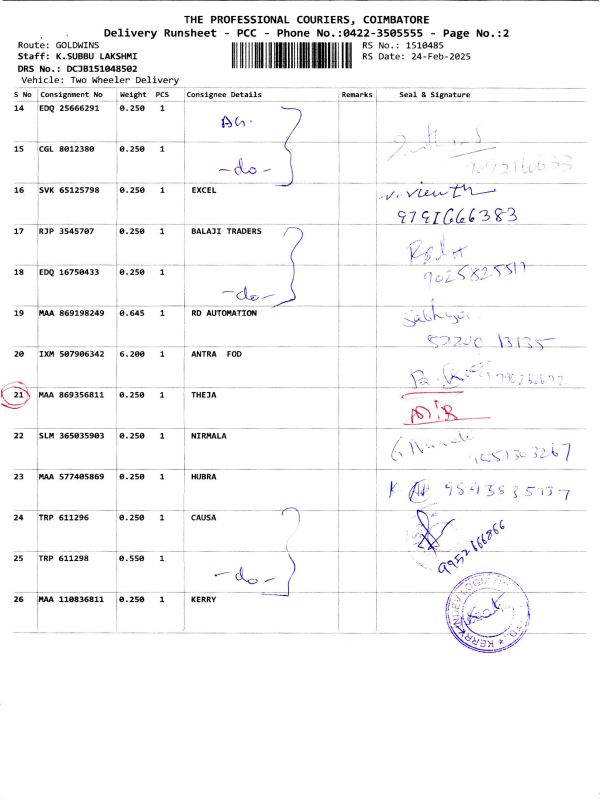 THE PROFESSIONAL COURIERS, COIMBATORE
Delivery Runsheet - PCC - Phone No.:0422-3505555 - Page No.:2
Route: GOLDWINS RS No.: 1510485
Staff: K.SUBBU LAKSHMI RS Date: 24-Feb-2025
DRS No.: DCJB151048502
Vehicle: Two Wheeler Delivery
S No Consignment No Weight PCS Consignee Details Remarks Seal & Signature
14 EDQ 25666291 0.250 1
15 CGL 8012380 0.250 1 -do-
16 SVK 65125798 0.250 1 EXCEL
9791666383
17 RJP 3545707 0.250 1 BALAJI TRADERS
18 EDQ 16750433 0.250 1 -do-
19 MAA 869198249 0.645 1 RD AUTOMATION
20 IXM 507906342 6.200 1 ANTRA FOD
21 MAA 869356811 0.250 1 THEJA
22 SLM 365035903 0.250 1 NIRMALA
23 MAA 577405869 0.250 1 HUBRA
24 TRP 611296 0.250 1 CAUSA
9952166866
25 TRP 611298 0.550 1 -do-
26 MAA 110836811 0.250 1 KERRY